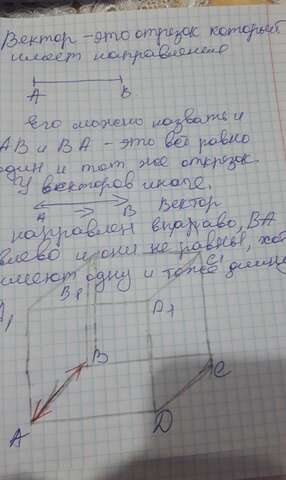 Вектор - это отрезок который
имеет направление
A B
его можно назвать и
AB и BA - это всё равно
один и тот же отрезок
У векторов иначе.
A B Вектор
направлен вправо, BA
влево и они не равны, хот
имеют одну и тоже длину
B₁ C₁
A₁ D₁
B C
A D